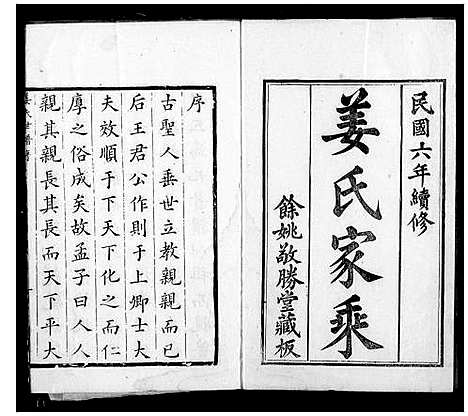 民國六年續修
姜氏家乘
餘姚敬勝堂藏板
序
古聖人垂世立教親親而已
后王君公作則于上卿士大
夫效順于下天下化之而仁
厚之俗成矣故孟子曰人人
親其親長其長而天下平大